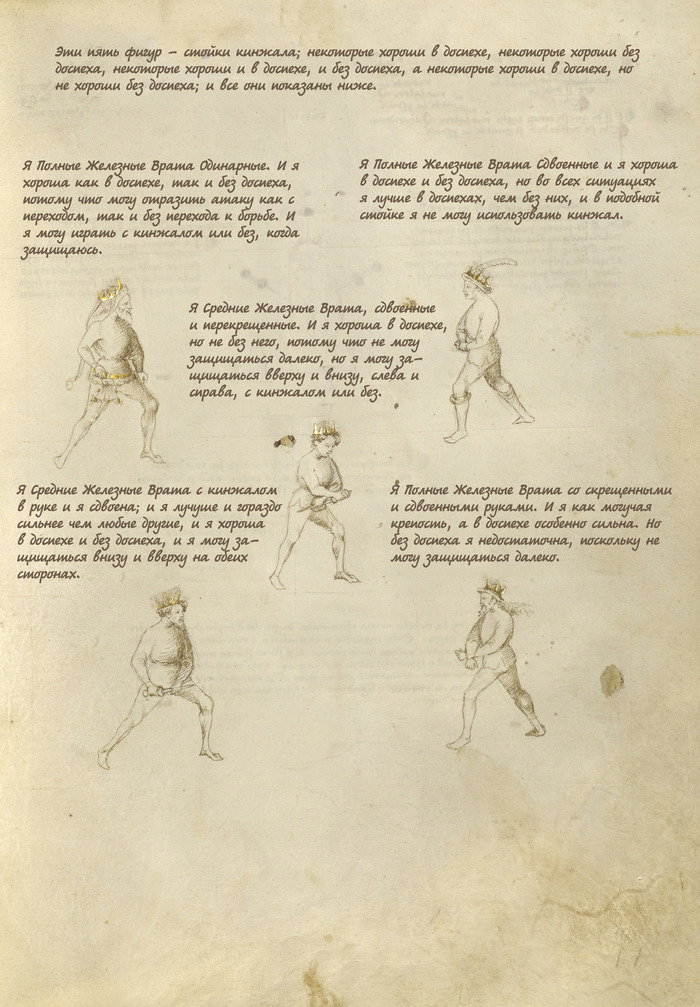 Эти пять фигур – стойки кинжала; некоторые хороши в доспехе, некоторые хороши без
доспеха, некоторые хороши и в доспехе, и без доспеха, а некоторые хороши в доспехе, но
не хороши без доспеха; и все они показаны ниже.
Я Полные Железные Врата Одинарные. И я
хороша как в доспехе, так и без доспеха,
потому что могу отразить атаку как с
переходом, так и без перехода к борьбе. И
я могу играть с кинжалом или без, когда
защищаюсь.
Я Полные Железные Врата Сдвоенные и я хороша
в доспехе и без доспеха, но во всех ситуациях
я лучше в доспехах, чем без них, и в подобной
стойке я не могу использовать кинжал.
Я Средние Железные Врата, сдвоенные
и перекрещенные. И я хороша в доспехе,
но не без него, потому что не могу
защищаться далеко, но я могу за–
щищаться вверху и внизу, слева и
справа, с кинжалом или без.
Я Средние Железные Врата с кинжалом
в руке и я сдвоена; и я лучуше и гораздо
сильнее чем любые другие, и я хороша
в доспехе и без доспеха, и я могу за–
щищаться внизу и вверху на обеих
сторонах.
Я Полные Железные Врата со скрещенными
и сдвоенными руками. И я как могучая
крепость, а в доспехе особенно сильна. Но
без доспеха я недостаточна, поскольку не
могу защищаться далеко.